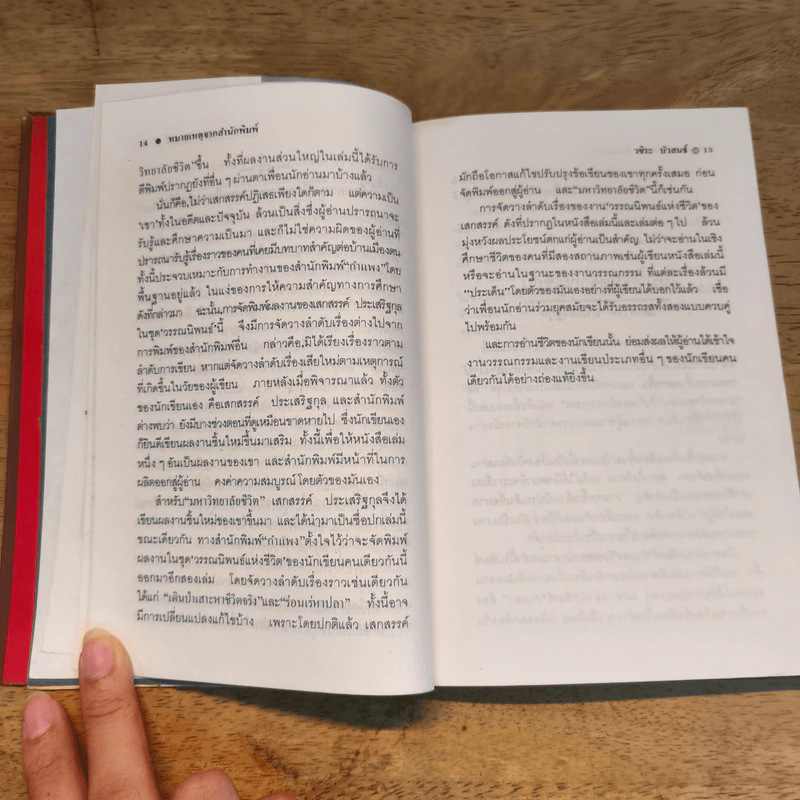 14 ● หมายเหตุจากสำนักพิมพ์
วิทยาลัยชีวิต"ขึ้น ทั้งที่ผลงานส่วนใหญ่ในเล่มนี้ได้รับการ
ตีพิมพ์ปรากฏยังที่อื่น ๆ ผ่านตาเพื่อนนักอ่านมาบ้างแล้ว
นั่นก็คือ,ไม่ว่าเสกสรรค์ปฏิเสธเพียงใดก็ตาม แต่ความเป็น
'เขา'ทั้งในอดีตและปัจจุบัน ล้วนเป็นสิ่งซึ่งผู้อ่านปรารถนาจะ
รับรู้และศึกษาความเป็นมา และก็ไม่ใช่ความผิดของผู้อ่านที่
ปรารถนารับรู้เรื่องราวของคนที่เคยมีบทบาทสำคัญต่อบ้านเมืองตน
ทั้งนี้ประจวบเหมาะกับการทำงานของสำนักพิมพ์"กำแพง"โดย
พื้นฐานอยู่แล้ว ในแง่ของการให้ความสำคัญทางการศึกษา
ดังที่กล่าวมา ฉะนั้น,การจัดพิมพ์ผลงานของเสกสรรค์ ประเสริฐกุล
ในชุด'วรรณนิพนธ์'นี้ จึงมีการจัดวางลำดับเรื่องต่างไปจาก
การพิมพ์ของสำนักพิมพ์อื่น กล่าวคือ,มิได้เรียงเรื่องราวตาม
ลำดับการเขียน หากแต่จัดวางลำดับเรื่องเสียใหม่ตามเหตุการณ์
ที่เกิดขึ้นในวัยของผู้เขียน ภายหลังเมื่อพิจารณาแล้ว ทั้งตัว
ของนักเขียนเอง คือเสกสรรค์ ประเสริฐกุล และสำนักพิมพ์
ต่างพบว่า ยังมีบางช่วงตอนที่ดูเหมือนขาดหายไป ซึ่งนักเขียนเอง
ก็ยินดีเขียนผลงานชิ้นใหม่ขึ้นมาเสริม ทั้งนี้เพื่อให้หนังสือเล่ม
หนึ่ง ๆ อันเป็นผลงานของเขา และสำนักพิมพ์มีหน้าที่ในการ
ผลิตออกสู่ผู้อ่าน คงค่าความสมบูรณ์โดยตัวของมันเอง
สำหรับ"มหาวิทยาลัยชีวิต" เสกสรรค์ ประเสริฐกุลจึงได้
เขียนผลงานชิ้นใหม่ของเขาขึ้นมา และได้นำมาเป็นชื่อปกเล่มนี้
ขณะเดียวกัน ทางสำนักพิมพ์"กำแพง"ตั้งใจไว้ว่าจะจัดพิมพ์
ผลงานในชุด'วรรณนิพนธ์แห่งชีวิต'ของนักเขียนคนเดียวกันนี้
ออกมาอีกสองเล่ม โดยจัดวางลำดับเรื่องราวเช่นเดียวกัน
ได้แก่ "เดินป่าเสาะหาชีวิตจริง"และ"ร่อนเร่หาปลา" ทั้งนี้อาจ
มีการเปลี่ยนแปลงแก้ไขบ้าง เพราะโดยปกติแล้ว เสกสรรค์
วชิระ บัวสนธ์ ◎ 15
มักถือโอกาสแก้ไขปรับปรุงข้อเขียนของเขาทุกครั้งเสมอ ก่อน
จัดพิมพ์ออกสู่ผู้อ่าน และ"มหาวิทยาลัยชีวิต"นี้ก็เช่นกัน
การจัดวางลำดับเรื่องของงาน'วรรณนิพนธ์แห่งชีวิต'ของ
เสกสรรค์ ดังที่ปรากฏในหนังสือเล่มนี้และเล่มต่อ ๆ ไป ล้วน
มุ่งหวังผลประโยชน์ตกแก่ผู้อ่านเป็นสำคัญ ไม่ว่าจะอ่านในเชิง
ศึกษาชีวิตของคนที่มีสองสถานภาพเช่นผู้เขียนหนังสือเล่มนี้
หรือจะอ่านในฐานะของงานวรรณกรรม ที่แต่ละเรื่องล้วนมี
"ประเด็น"โดยตัวของมันเองอย่างที่ผู้เขียนได้บอกไว้แล้ว เชื่อ
ว่าเพื่อนนักอ่านร่วมยุคสมัยจะได้รับอรรถรสทั้งสองแบบควบคู่
ไปพร้อมกัน
และการอ่านชีวิตของนักเขียนนั้น ย่อมส่งผลให้ผู้อ่านได้เข้าใจ
งานวรรณกรรมและงานเขียนประเภทอื่น ๆ ของนักเขียนคน
เดียวกันได้อย่างถ่องแท้ยิ่งขึ้น